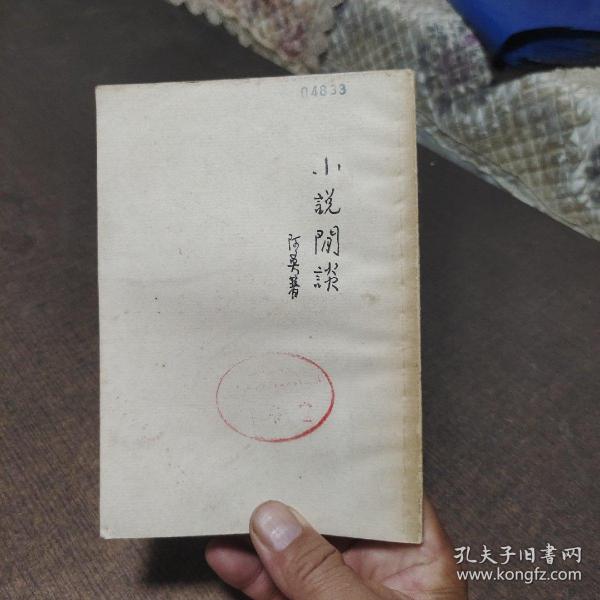 04833
小説閒談
阿英著
孔夫子旧书网
www.kongfz.com